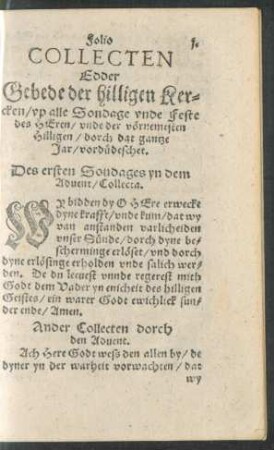 Folio 1.
COLLECTEN
Edder
Gebede der hilligen Ker-
cken / vp alle Sondage vnde Feste
des HEren / vnde der vörnemesten
Hilligen / dorch dat gantze
Jar / vordüdeschet.
Des ersten Sondages yn dem
Aduent / Collecta.
WY bidden dy O HEre erwecke
dyne krafft / vnde kum / dat wy
van anstanden varlicheiden
vnser Sünde / dorch dyne be-
scherminge erlöset / vnd dorch
dyne erlösinge erholden vnde salich wer-
den. De du leuest vnnde regerest mith
Godt dem Vader yn enicheit des hilligen
Geistes / ein warer Godt ewichlick sun-
der ende / Amen.
Ander Collecten dorch
den Aduent.
Ach Here Godt weß den allen by / de
dyner yn der warheit vorwachten / dat
wy